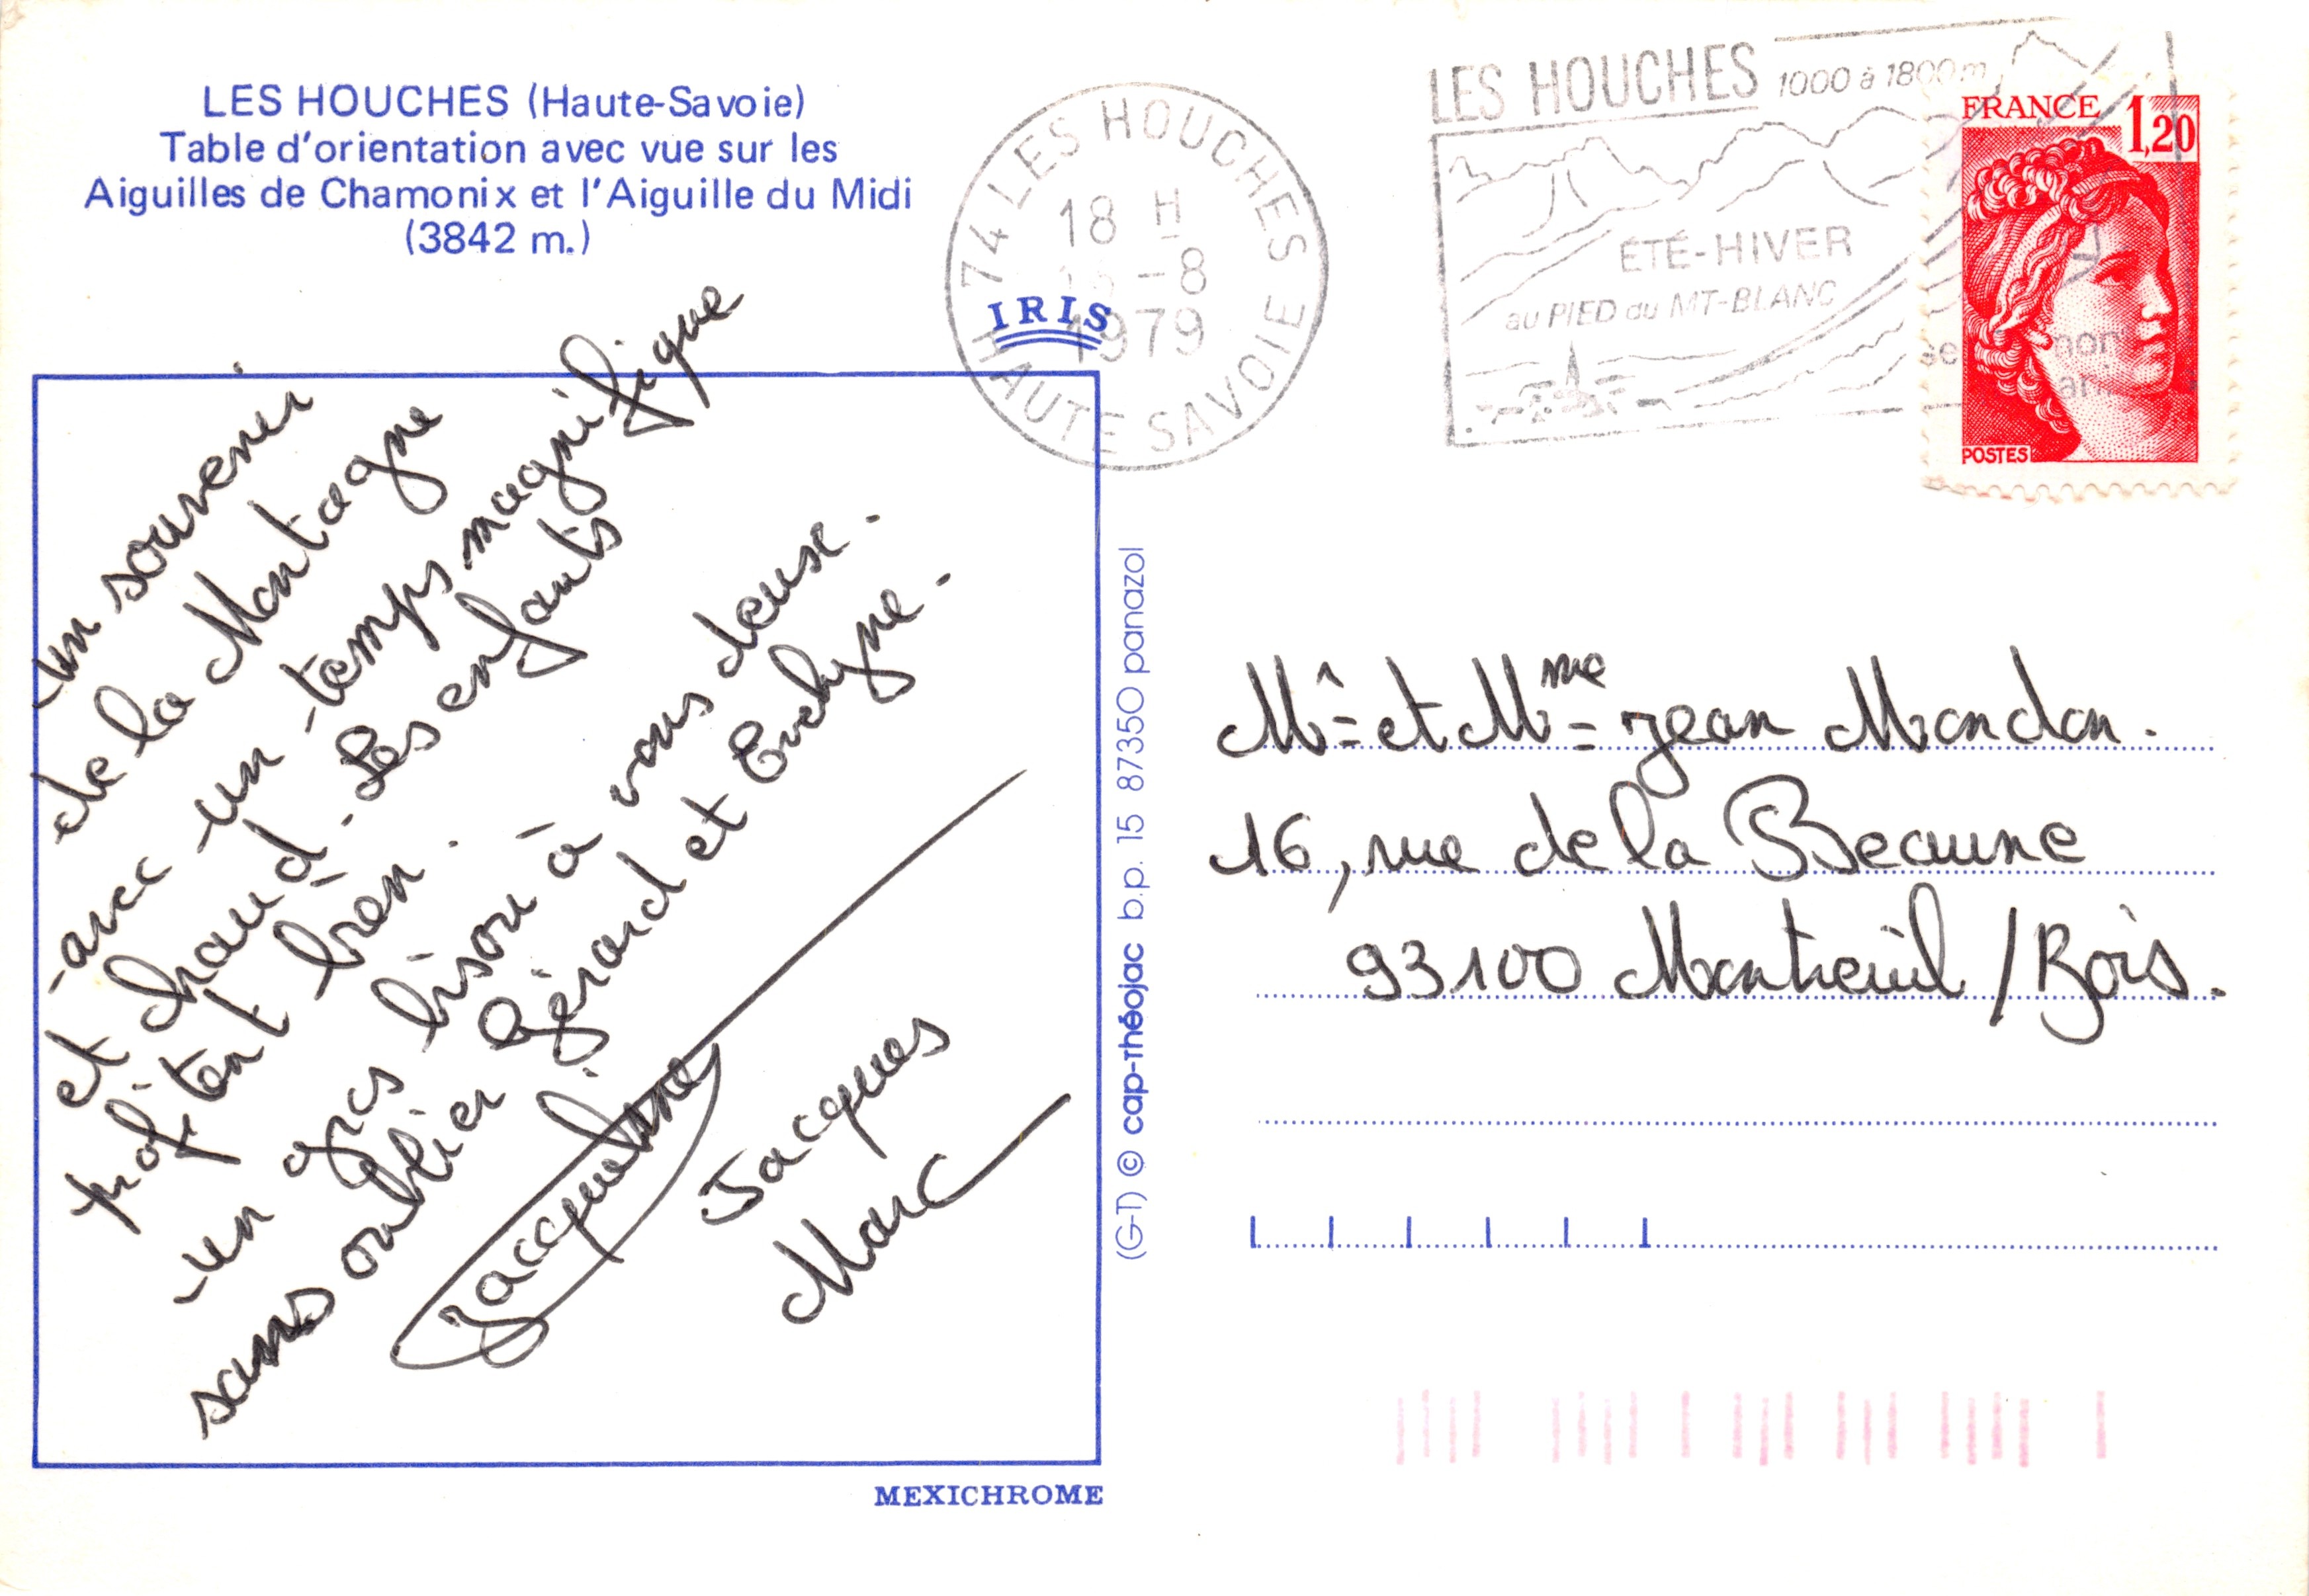 LES HOUCHES (Haute-Savoie)
Table d'orientation avec vue sur les
Aiguilles de Chamonix et l'Aiguille du Midi
(3842 m.)
IRIS
74 LES HOUCHES
18 H
-8
1979
HAUTE SAVOIE
LES HOUCHES 1000 à 1800 m
ÉTÉ-HIVER
au PIED du MT-BLANC
FRANCE 1,20
POSTES
un souvenir
de la Montagne
avec un temps magnifique
et chaud. Les enfants
profitent bien.
un gros bisou à vous deux.
sans oublier Gérard et Evelyne.
Jacqueline
Jacques
Marc
(G-T) © cap-théojac b.p. 15 87350 panazol
Mr et Mme Jean Mondon.
16, rue de la Beaune
93100 Montreuil / Bois.
MEXICHROME